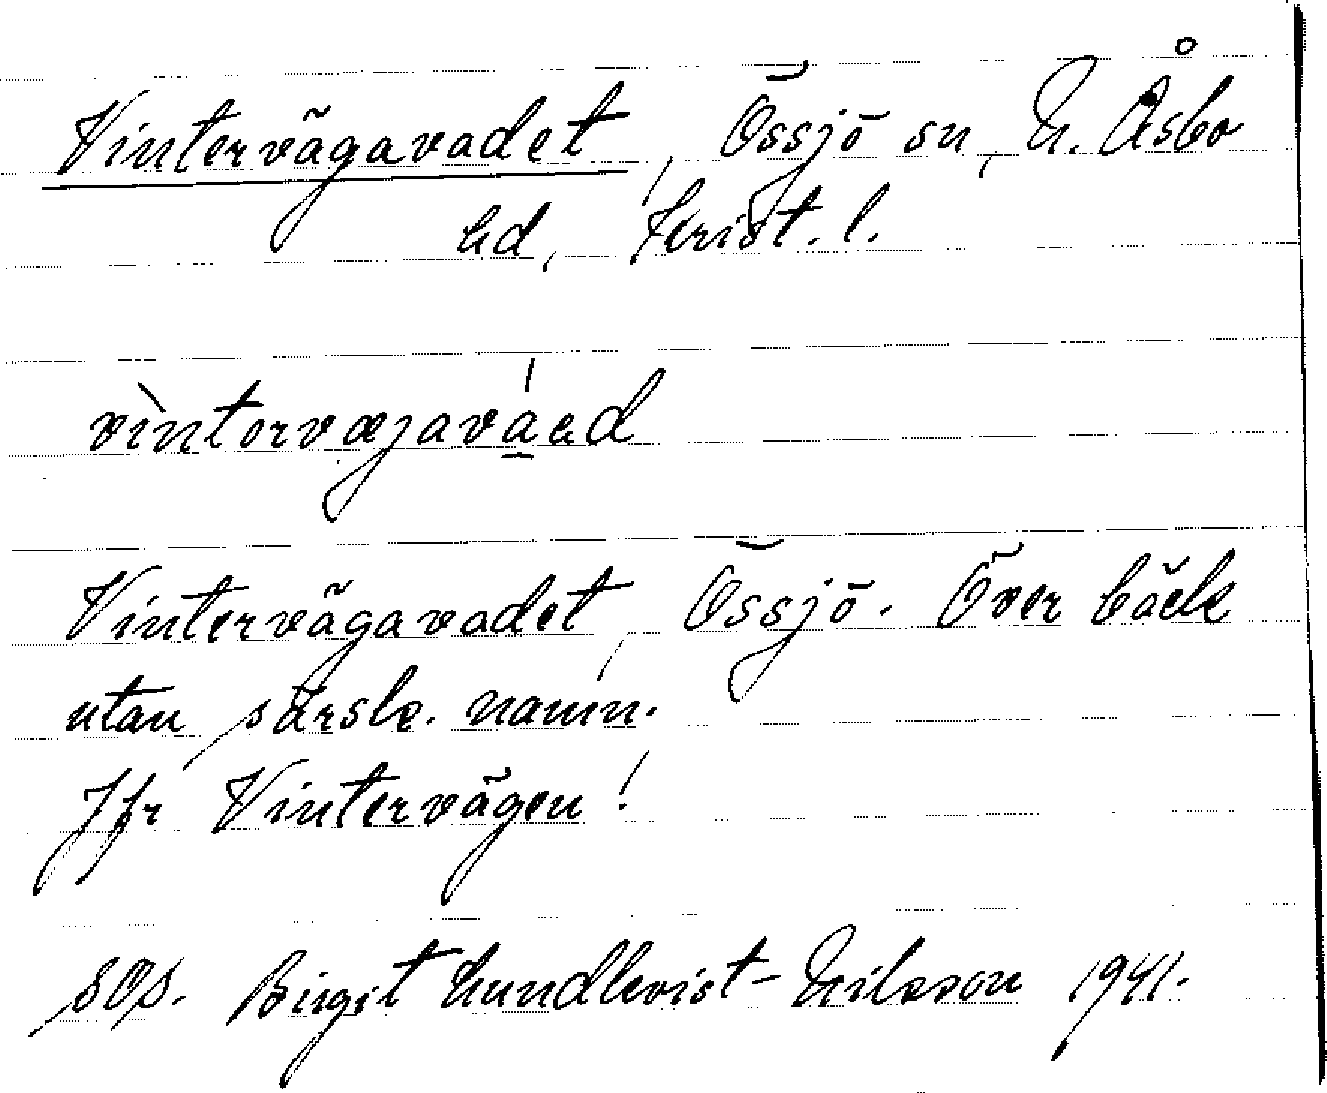 Vintervägavadet, Össjö sn, N. Åsbo
hd, Krist. l.
vìntorvæjavá͟ad
Vintervägavadet, Össjö. Över bäck
utan särsk. namn.
Jfr Vintervägen!
SOA. Birgit Lundkvist-Nilsson 1941.